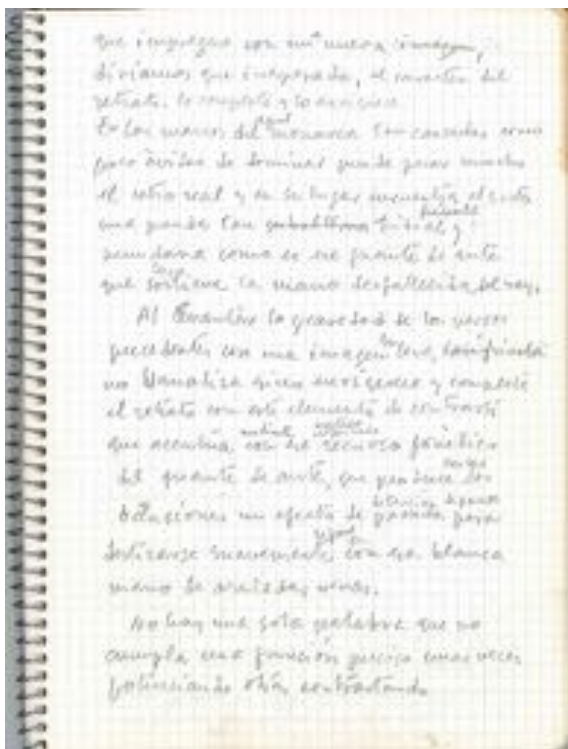 que impregna con una nueva imagen,
diríamos que inesperada, el carácter del
retrato, lo completa y lo enriquece
En las manos del aquel monarca tan cansadas como
poco ávidas de dominar puede pesar mucho
el cetro real y en su lugar encuentra el poeta
una prenda tan trivial y
mundana como es ese guante de ante
que sostiene la mano desfallecida del rey.
Al la gravedad de los versos
precedentes con una imagen leve,
no banaliza sino enriquece y completa
el retrato con este elemento de contraste
que acentúa recurso fonético
del guante de ante, que produce con sus
oclusiones un efecto de para
deslizarse suavemente con esa blanca
mano de azuladas venas.
No hay una sola palabra que no
cumpla una función precisa unas veces
potenciando otras contrastando